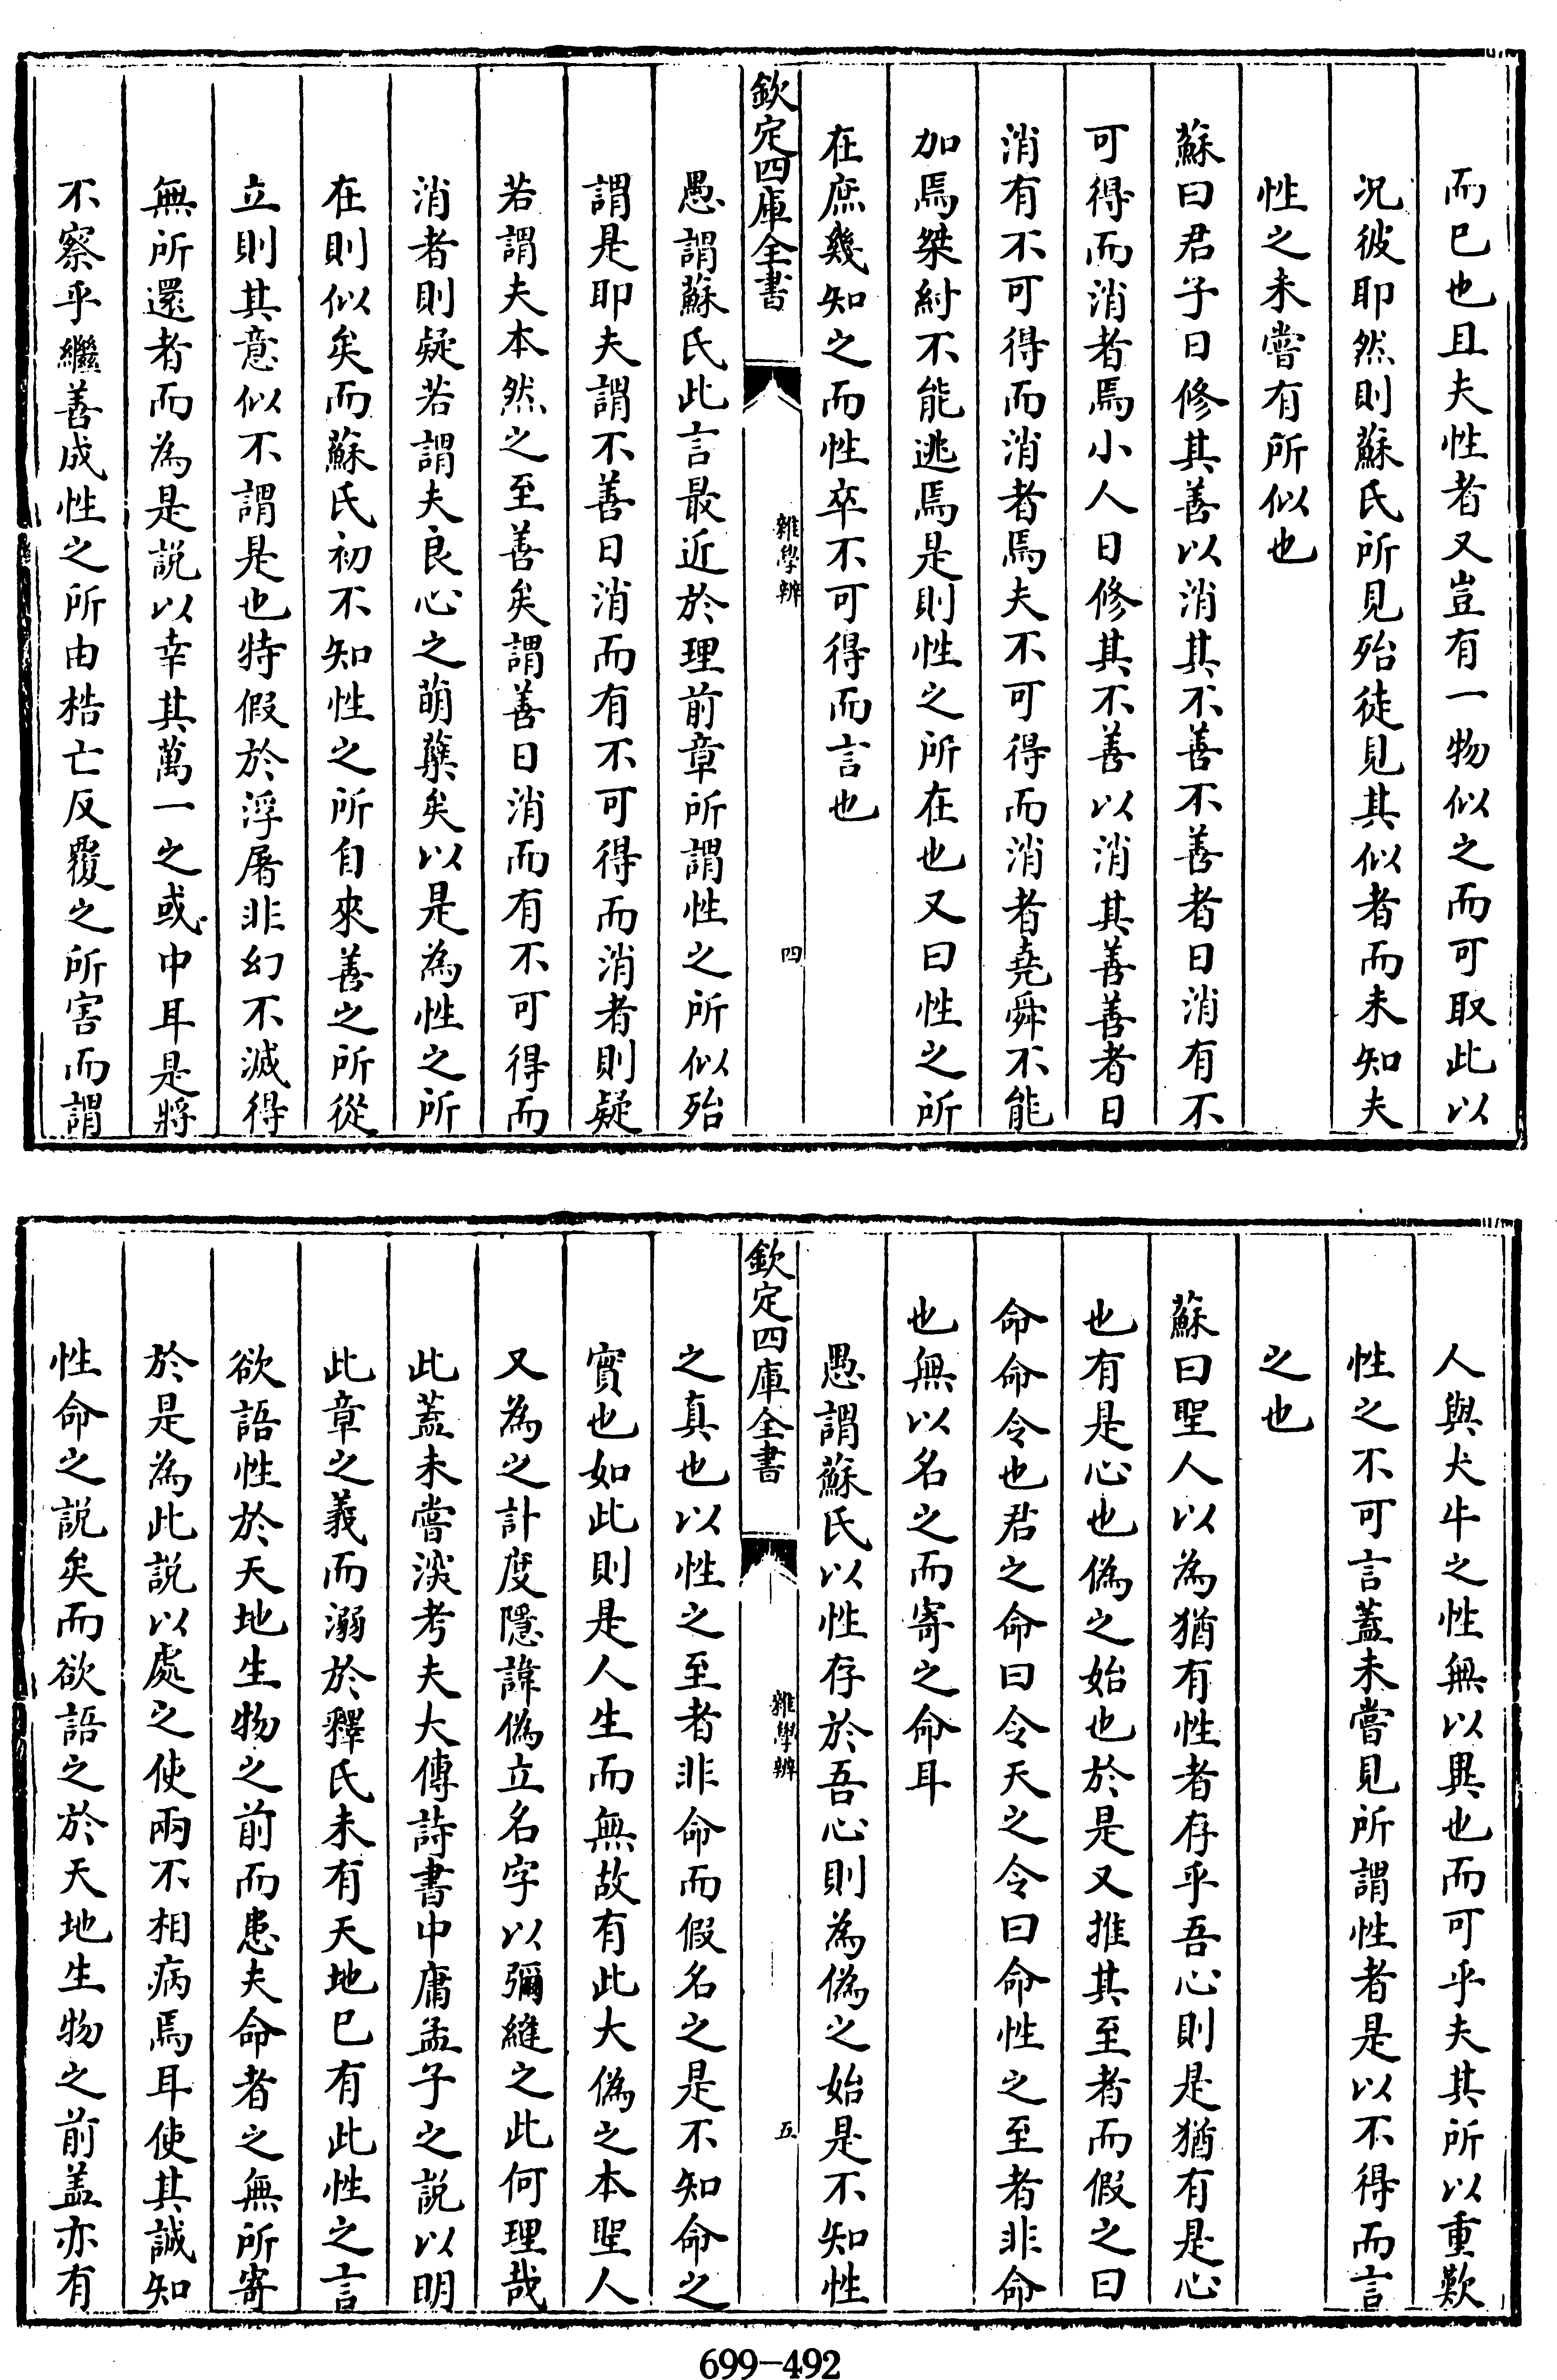 而已也且夫性者又豈有一物似之而可取此以
况彼耶然則蘇氏所見殆徒見其似者而未知夫
性之未嘗有所似也
蘇曰君子日修其善以消其不善不善者日消有不
可得而消者焉小人日修其不善以消其善善者日
消有不可得而消者焉夫不可得而消者堯舜不能
加焉桀紂不能逃焉是則性之所在也又曰性之所
在庶幾知之而性卒不可得而言也
欽定四庫全書
雜學辨
四
愚謂蘇氏此言最近於理前章所謂性之所似殆
謂是耶夫謂不善日消而有不可得而消者則疑
若謂夫本然之至善矣謂善日消而有不可得而
消者則疑若謂夫良心之萌蘖矣以是為性之所
在則似矣而蘇氏初不知性之所自來善之所從
立則其意似不謂是也特假於浮屠非幻不滅得
無所還者而為是説以幸其萬一之或中耳是將
不察乎繼善成性之所由梏亡反覆之所害而謂
人與犬牛之性無以異也而可乎夫其所以重歎
性之不可言蓋未嘗見所謂性者是以不得而言
之也
蘇曰聖人以為猶有性者存乎吾心則是猶有是心
也有是心也偽之始也於是又推其至者而假之曰
命命令也君之命曰令天之令曰命性之至者非命
也無以名之而寄之命耳
愚謂蘇氏以性存於吾心則為偽之始是不知性
欽定四庫全書
雜學辨
五
之真也以性之至者非命而假名之是不知命之
實也如此則是人生而無故有此大偽之本聖人
又為之計度隱諱偽立名字以彌縫之此何理哉
此蓋未嘗深考夫大傳詩書中庸孟子之説以明
此章之義而溺於釋氏未有天地已有此性之言
欲語性於天地生物之前而患夫命者之無所寄
於是為此説以處之使兩不相病焉耳使其誠知
性命之説矣而欲語之於天地生物之前蓋亦有
699-492